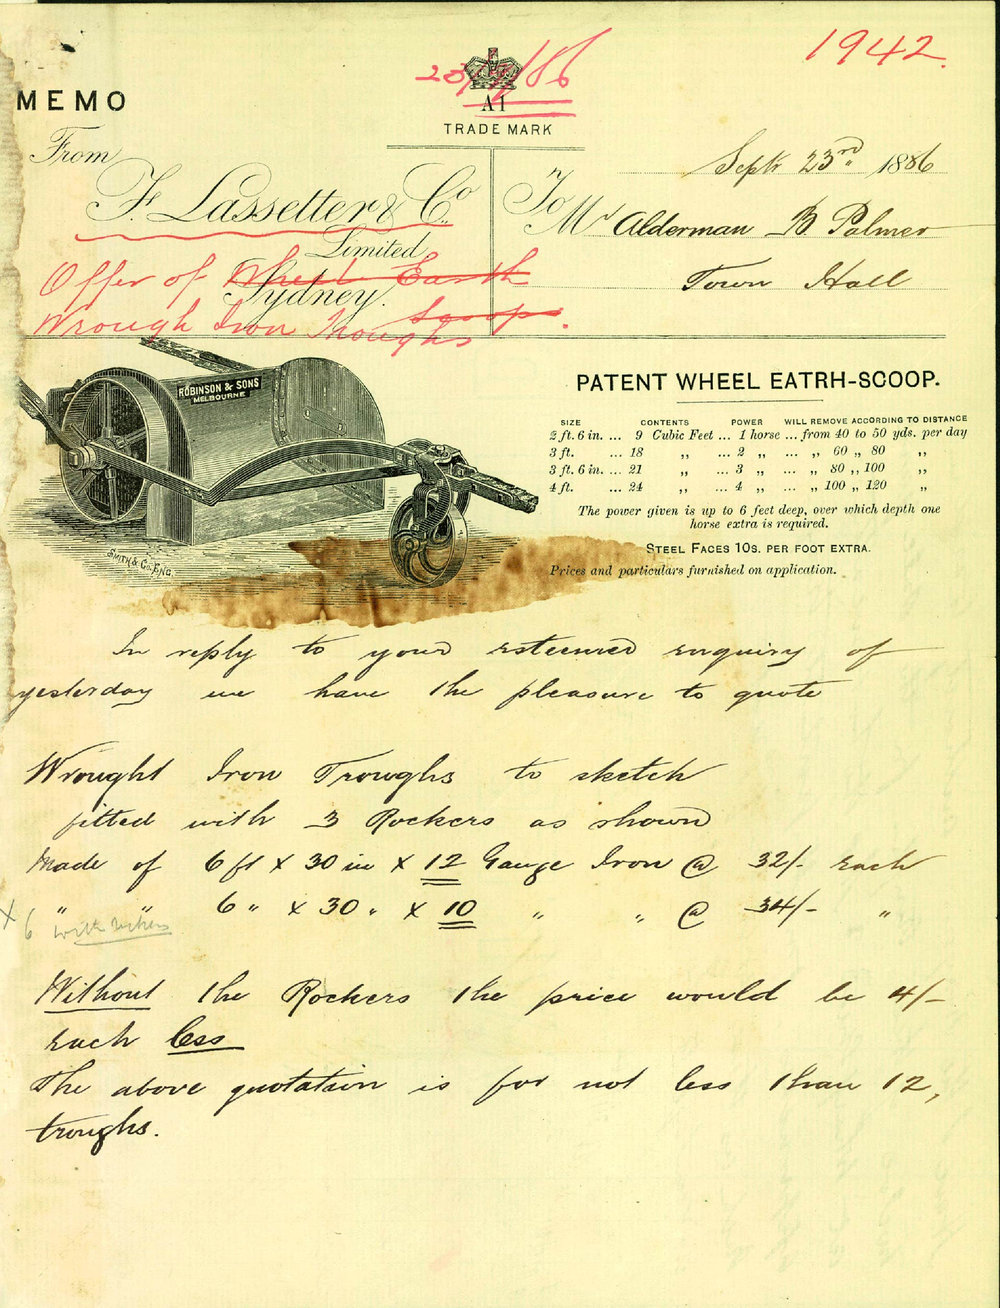 1942.
23/9/86
MEMO
A1
TRADE MARK
From
F. Lassetter & Co.
Limited
Sydney.
Sept 23rd. 1886
To Mr Alderman B Palmer
Town Hall
Offer of Wheel Earth
Scoops.
Wrough Iron Troughs
ROBINSON & SONS
MELBOURNE
SMITH & Co. ENG
PATENT WHEEL EATRH-SCOOP.
SIZE CONTENTS POWER WILL REMOVE ACCORDING TO DISTANCE
2 ft. 6 in. ... 9 Cubic Feet ... 1 horse ... from 40 to 50 yds. per day
3 ft. ... 18 ,, ... 2 ,, ... ,, 60 ,, 80 ,,
3 ft. 6 in. ... 21 ,, ... 3 ,, ... ,, 80 ,, 100 ,,
4 ft. ... 24 ,, ... 4 ,, ... ,, 100 ,, 120 ,,
The power given is up to 6 feet deep, over which depth one
horse extra is required.
STEEL FACES 10S. PER FOOT EXTRA.
Prices and particulars furnished on application.
In reply to your esteemed enquiry of
yesterday we have the pleasure to quote
Wrought Iron Troughs to sketch
fitted with 3 Rockers as shown
Made of 6 ft x 30 in x 12 Gauge Iron @ 32/- each
" " 6 " x 30 " x 10 " " @ 34/- "
x 6 with rockers
Without the Rockers the price would be 4/-
each less
The above quotation is for not less than 12,
troughs.